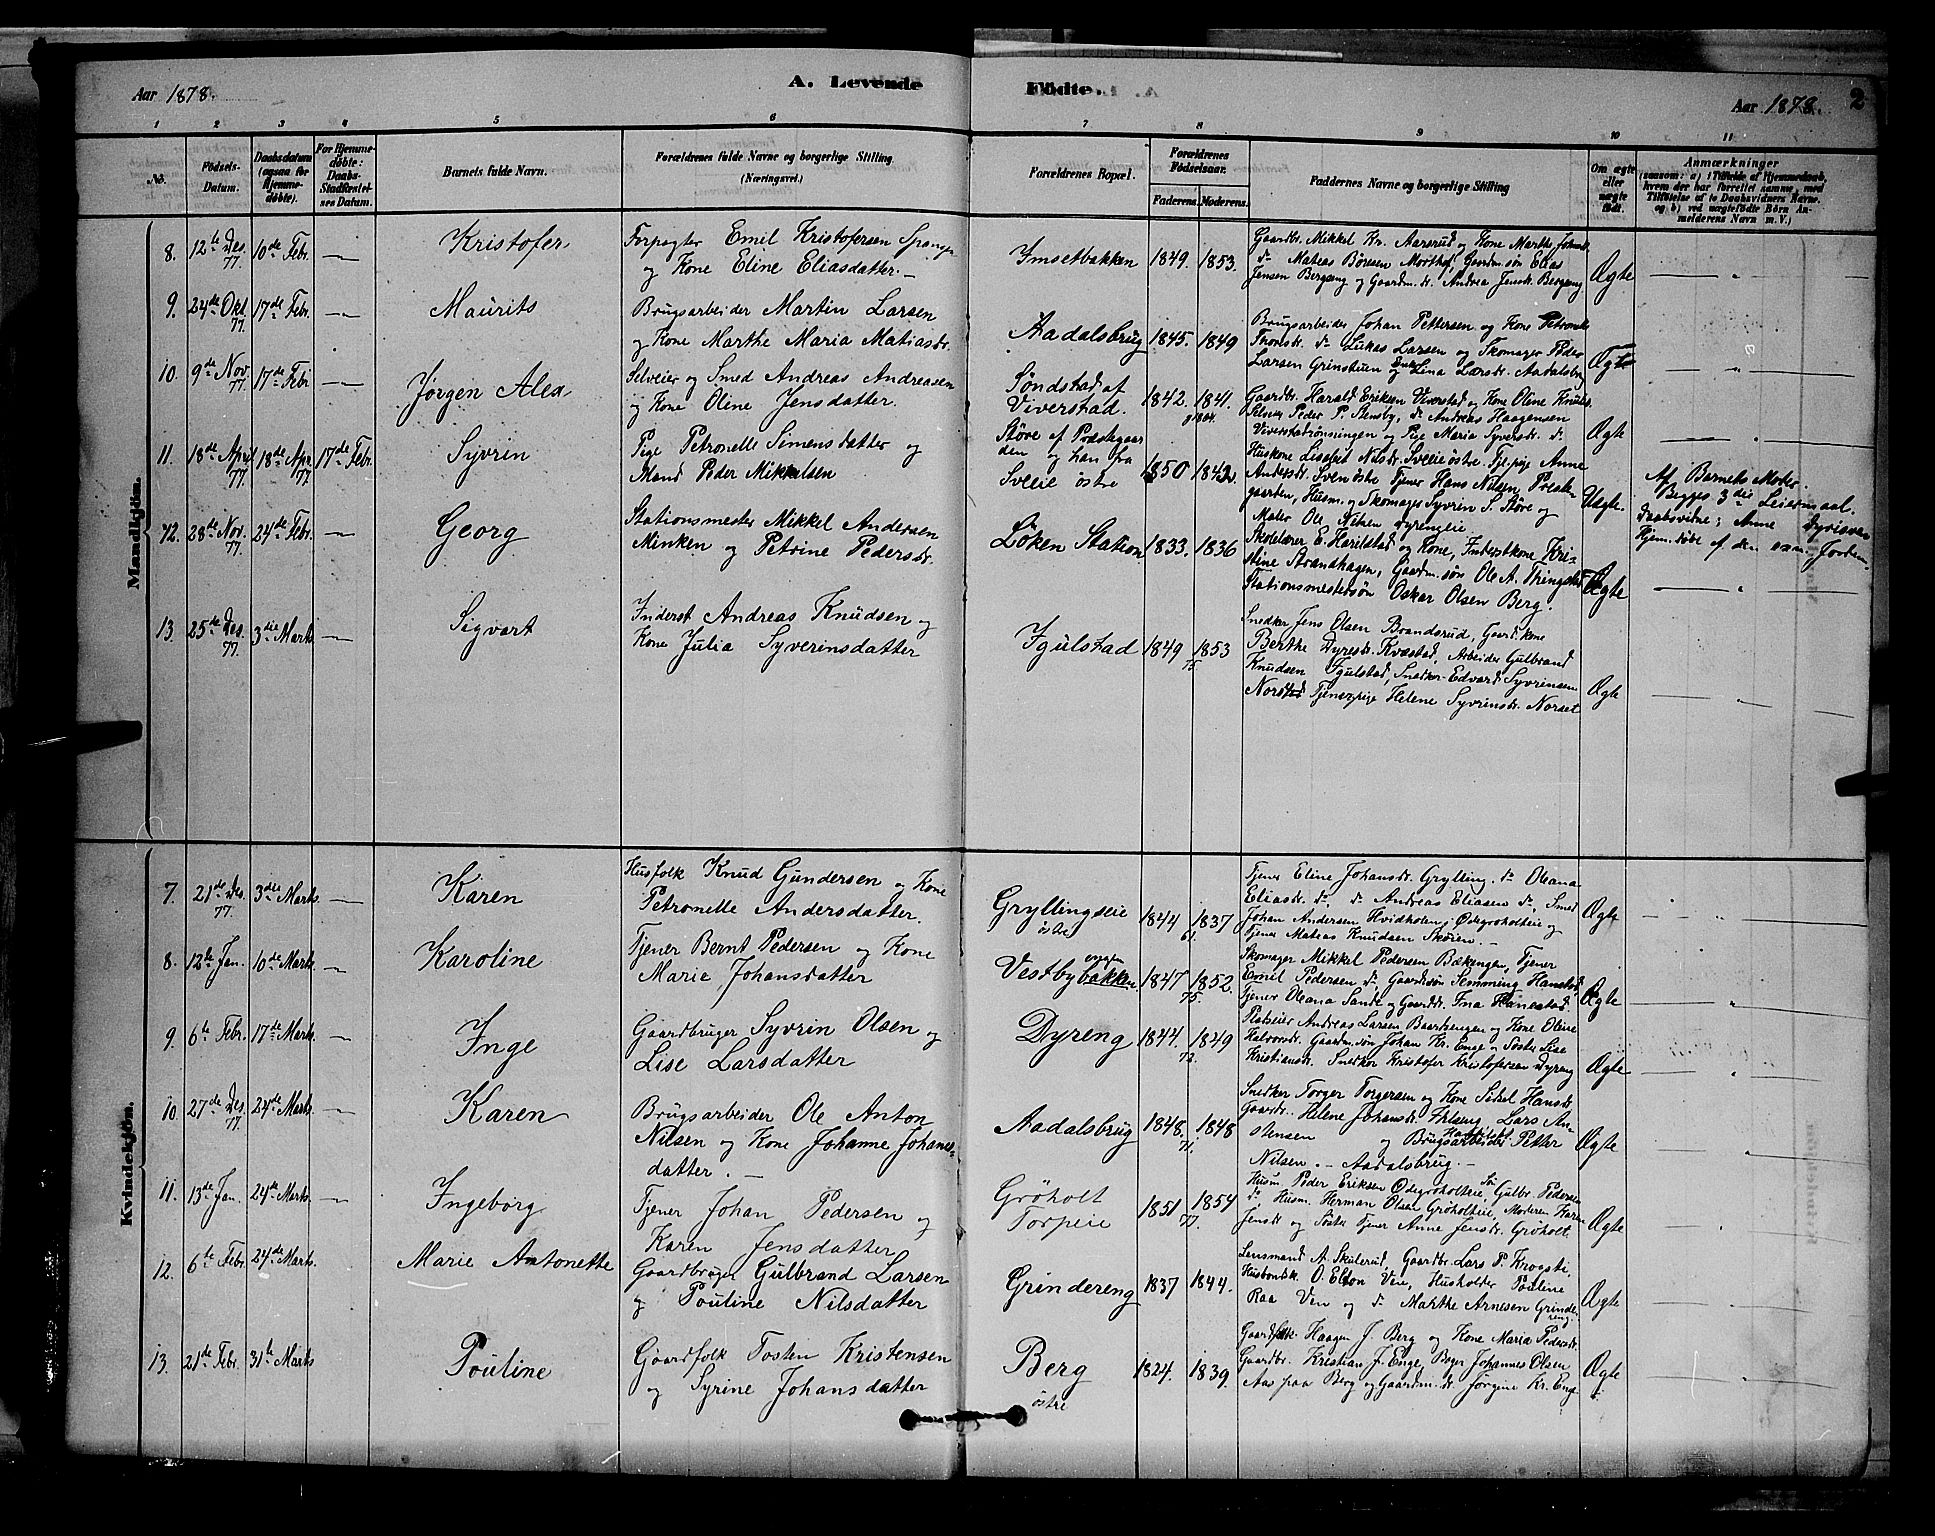 Aar 1878.
A. Levende
Fødte.
Aar 1878.
2
1 2 3 4 5 6 7 8 9 10 11
No.
Fødsels-
Datum.
Daabsdatum
(ogsaa for
Hjemme-
døbte).
For Hjemme-
døbte:
Daabs-
Stadfæstel-
ses Datum.
Barnets fulde Navn.
Forældrenes fulde Navne og borgerlige Stilling.
(Næringsvei.)
Forældrenes Bopæl.
Forældrenes
Fødselsaar.
Faderens. Moderens.
Faddernes Navne og borgerlige Stilling
Om ægte
eller
uægte
født.
Anmærkninger
(saasom: a) i Tilfælde af Hjemmedaab,
hvem der har forrettet samme, med
Tilføielse af to Daabsvidners Navne.
og b) ved uægtefødte Børn An-
melderens Navn m. V.)
Mandkjøn.
8. 12te Des. 77. 10de Febr. —
Kristofer
Forpagter Emil Kristofersen
og Kone Eline Eliasdatter. —
Imsetbakken 1849. 1853.
Gaardbr. Mikkel Kr. Aarsrud og Kone Marthe
do Matias Børesen Morthof, Gaardm. søn Elias
Jensen Bergeng og Gaardm. dr. Andrea Jensdr. Bergeng
Ægte
9. 24de Okt. 77. 17de Febr. —
Maurits
Brugsarbeider Martin Larsen
og Kone Marthe Maria Matiasdr.
Aadalsbrug 1845. 1849
Brugsarbeider Johan Pettersen og Kone
Thorsdr. do Lukas Larsen og Skomager Peder
Larsen og Enke Lina Larsdr. Aadalsbr.
Ægte
10. 9de Nov. 77. 17de Febr —
Jørgen Alea
Selveier og Smed Andreas Andreasen
og Kone Oline Jensdatter.
Søndstad af
Viverstad. 1842. 1841.
Gaardbr. Harald Eriksen Viverstad og Kone Oline Knuds.
Peder P. Stensby, do Andreas Haagensen
og Pige Maria Syversdr. do
Ægte
11. 18de Apr. 77. 18de Apr. 77. 17de Febr.
Syvrin
Pige Petronelle Simensdatter og
Mand Peder Mikkelsen
Støre af Præstegaar
den og han fra
Sveie østre
1850 1842.
Huskone Lisabet Nilsdr. Sveie østre, Tj. pige Anne
Andersdr. Sveen østre Tjener Hans Nilsen, Preste
gaarden, Husm. og Skomager Syvrin S. Støre og
Maler Ole Nilsen Dyrengeie.
Uægte.
Af Barnets Moder.
Begges 3die Leiermaal.
Daabsvidne; Anne
Hjem. døbt af den exam. Jordem.
12. 28de Nov. 77. 24de Febr. —
Georg
Stationsmester Mikkel Andersen
Minken og Petrine Pedersdr.
Løken Station 1833. 1836
Skolelærer E. Harildstad og Kone, Inderstkone Kri-
stine Strandhagen, Gaardm. søn Ole A. Thingstad
Stationsmestersøn Oskar Olsen Berg.
Ægte
13. 25de Des. 77. 3die Marts —
Sigvart
Inderst Andreas Knudsen og
Kone Julia Syverinsdatter
Igulstad 1849 75. 1853
Snedker Jens Olsen Brandsrud, Gaardkone
Berthe Dyresdr. Kvæstad, Arbeider Gulbrand
Knudsen Igulstad, Snedker Edvard Syvrinsen
Norstad Tjenerpige Helene Syvrinsdr. Norset
Ægte
Kvindekjøn.
7. 21de Des. 77. 3die Marts. —
Karen
Husfolk Knud Gundersen og Kone
Petronelle Andersdatter.
Gryllingseie
østre
1844 1837 61.
Tjener Eline Johansdr. Grylling. do Oleana
Eliasdr. do, do Andreas Eliasen do, Smed
Johan Andersen Hvidholen, Ødegroholteie og
Tjener Matias Knudsen Skøien. —
Ægte
8. 12te Jan. 10de Marts. —
Karoline
Tjener Bernt Pedersen og Kone
Marie Johansdatter
Vestbybakken 1847 75. 1852.
Skomager Mikkel Pedersen Bækengen, Tjener
Emil Pedersen do, Gaardmsøn Semming Hanestad,
Tjener Oleana Sande og Gaarddr. Ina Hanestad.
Ægte
9. 6te Febr. 17de Marts. —
Inge
Gaardbruger Syvrin Olsen og
Lise Larsdatter
Dyreng 1844. 72. 1849
Pladseier Andreas Larsen Baarhengen og Kone Oline
Halvorsdr. Gaardm. søn Johan Kr. Enge og Søster Lise
Kristiansdr. Snedker Kristofer Kristofersen Dyreng
Ægte
10. 27de Des. 77. 24de Marts. —
Karen
Brugsarbeider Ole Anton
Nilsen og Kone Johanne Johans-
datter. —
Aadalsbrug 1848. 71. 1848
Snedker Torger Torgersen og Kone Sidsel Hansdr.
Gaardbr. Helene Johansdr. Lars An-
stensen og Brugsarbeider Petter
Nilsen. — Aadalsbrug. —
Ægte
11. 13de Jan. 24de Marts. —
Ingeborg
Tjener Johan Pedersen og
Karen Jensdatter
Gröholt
Torpeie
1851 77. 1854
Husm. Peder Eriksen Ødegroholteie, Sø. Gulbr. Pedersen
do, Husm. Herman Olsen Gröholteie, Moderen Karen
Jensdr. og Søster Tjener Anne Jensdr. Gröholt.
Ægte
12. 6te Febr. 24de Marts.
Marie Antonette
Gaardbruger Gulbrand Larsen
og Pouline Nilsdatter
Grindereng 1837 1844.
Lensmand A. Skulerud, Gaardbr. Lars P. Krogsti,
O. Elton Vein, Husholder Pouline
Raa Ven og do Marthe Arnesen Grinde
reng.
Ægte
13. 21de Febr. 31te Marts
Pouline
Gaardfolk Tosten Kristensen
og Syrine Johansdatter
Berg
østre
1824. 1839.
Gaardfolk. Haagen J. Berg og Kone Maria Pedersdr.
Gaardbr. Kristian J. Enge, Johannes Olsen
Aas paa Berg og Gaardm. dr. Jørgine Kr. Enge
Ægte